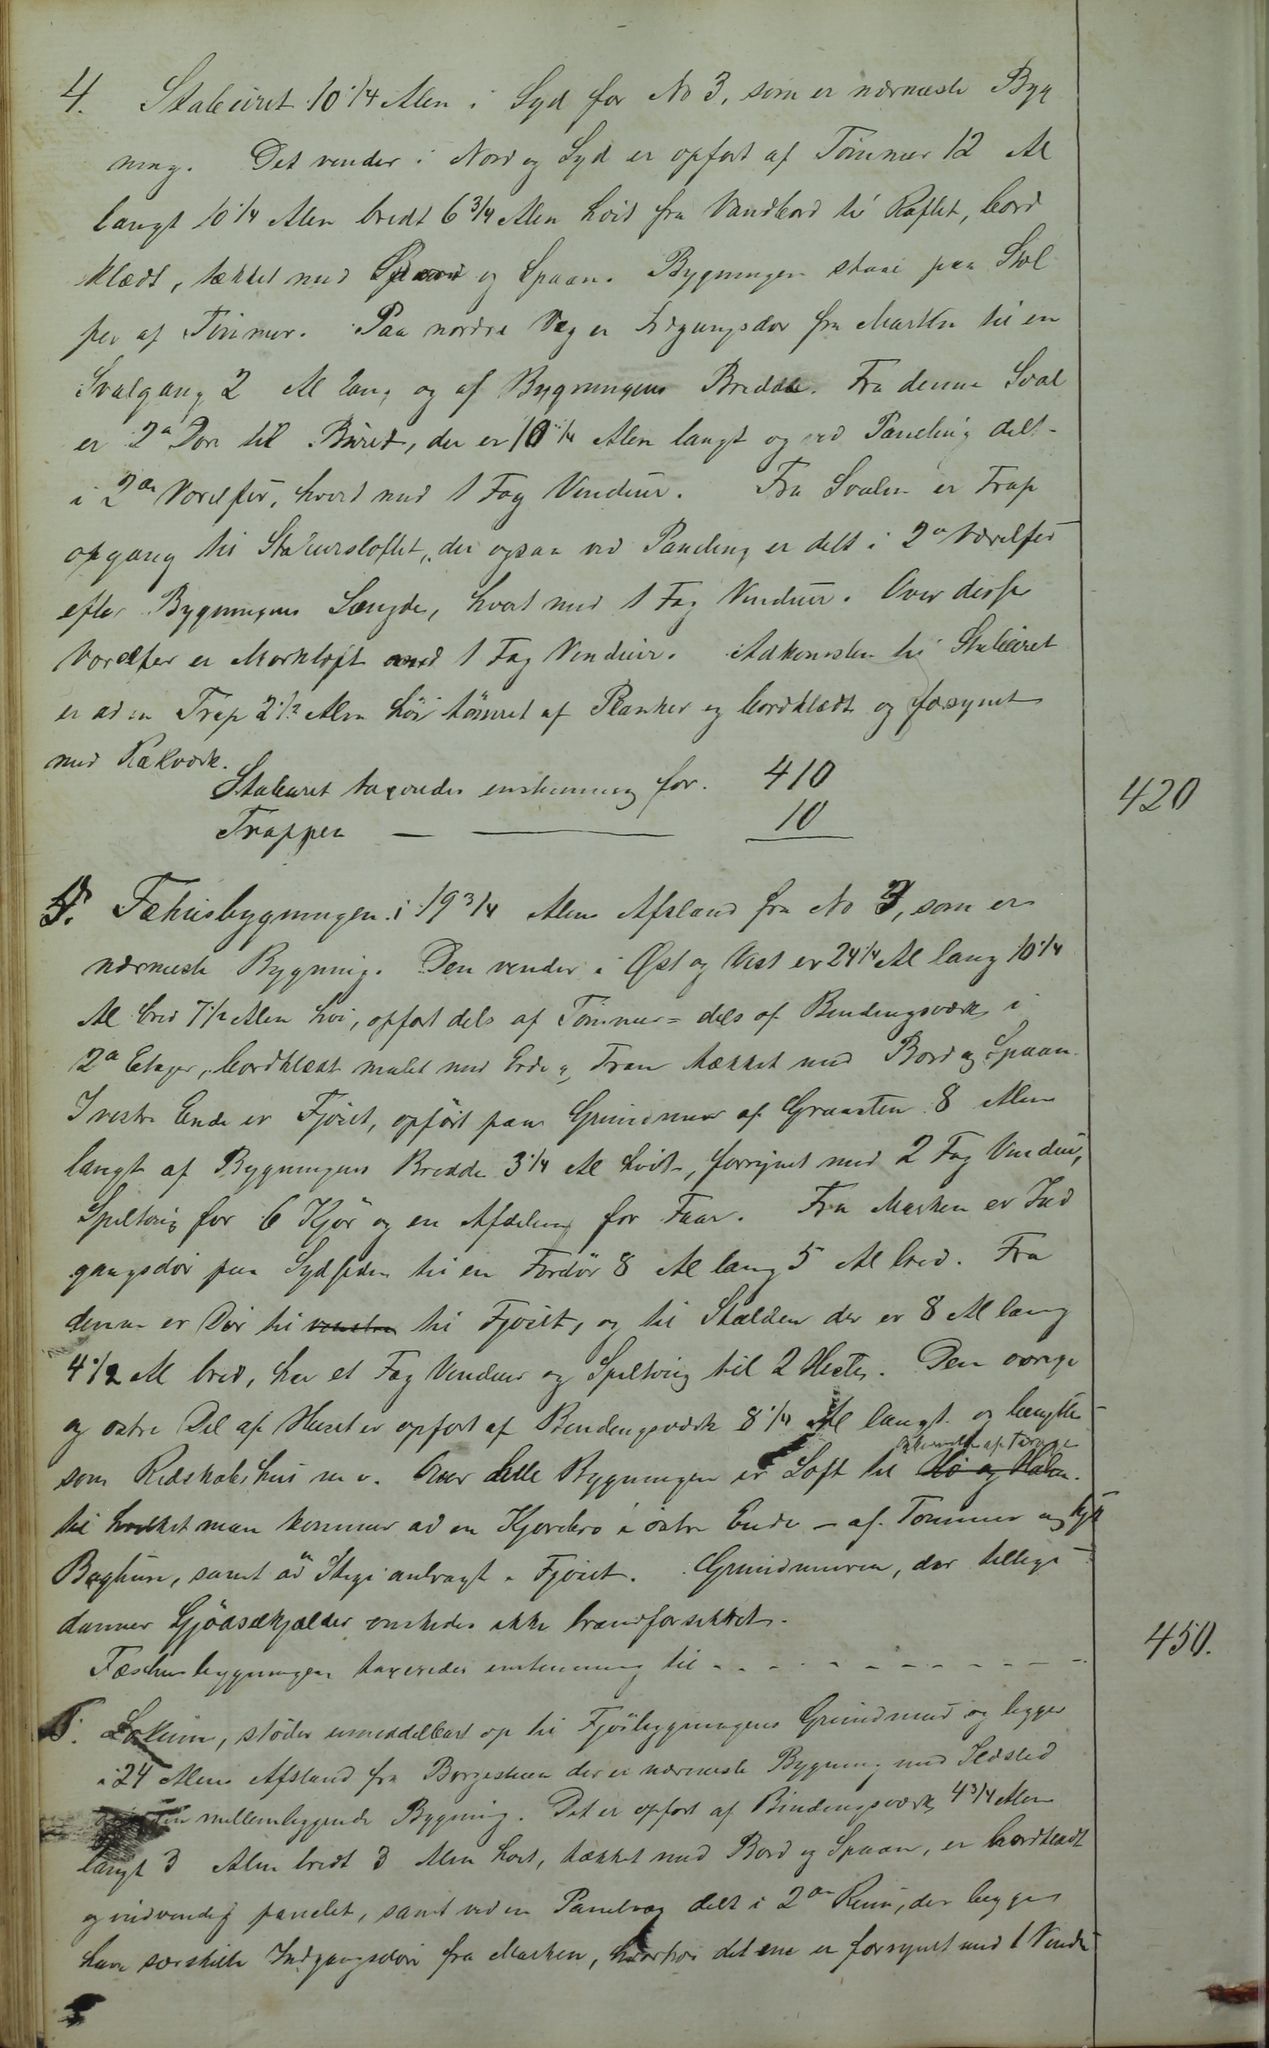 4. Staburet 10 1/4 Alen i Syd for No 3, som er nærmeste Byg
ning. Det vender i Nord og Syd er opført af Tømmer 12 Al
langt 10 1/4 Alen bredt 6 3/4 Alen høit fra Vandbord til Raftet, bord
klædt, tækket med og Spaan. Bygningen staar paa Stol
per af Tømmer. Paa nordre Væg er Indgangsdør fra Marken til en
Svalgang 2 Al lang og af Bygningens Bredde. Fra denne Sval
er 2a Døre til Buret, der er 10 1/4 Alen langt og ved Paneling delt
i 2de Værelser, hvert med 1 Fag Vinduer. Fra Svalen er Trap
opgang til Stabursloftet, der ogsaa ved Paneling er delt i 2a Værelser
efter Bygningens Længde, hvert med 1 Fag Vinduer. Over disse
Værelser er Mørkloft med 1 Fag Vinduer. Adkomsten til Stabburet
er ad en Trap 2 1/2 Alen høi tømret af Planker og bordklædt og forsynet
med Rækværk.
Stabburet taxeredes enstemmig for. 410
420
Trappen — — 10
5. Fæhusbygningen i 19 3/4 Alens Afstand fra No 3, som er
nærmeste Bygning. Den vender i Øst og Vest er 24 1/4 Al lang 10 1/4
Al bred 7 1/2 Alen høi, opført dels af Tømmer= dels af Bindingsværk i
2a Etager, bordklædt malet med Erde og Tran tækket med Bord og Spaan.
I vestre Ende er Fjøset, opført paa Grundmur af Graasten 8 Alen
langt af Bygningens Bredde 3 1/4 Al høit, forsynet med 2 Fag Vinduer,
Spiltoug for 6 Kjør og en Afdeling for Faar. Fra Marken er Ind
gangsdør paa Sydsiden til en Fordør 8 Al lang 5 Al bred. Fra
denne er Dør til venstre til Fjøset, og til Stalden der er 8 Al lang
4 1/2 Al bred, har et Fag Vinduer og Spiltoug til 2 Heste. Den øvrige
og østre Del af Huset er opført af Bindingsværk 8 1/4 Al langt og benyttes
af
som Redskabshus m v. Over hele Bygningen er Loft til Hø og Halm.
til hvilket man kommer ad en Kjørebro i østre Ende – af Tømmer og
Baghun, samt ad Stige anbragt i Fjøset. Grundmuren, der tillige
danner Gjødselkjælder ønskedes ikke brandforsikkret.
Fæhusbygningen taxeredes enstemmig til - - - - - - - - - - -
450.
Lokum, støder umiddelbart op til Fjøsbygningens Grundmur og ligger
i 24 Alens Afstand fra Borgestuen der er nærmeste Bygning med Ildsted
mellemliggende Bygning. Det er opført af Bindingsværk 4 3/4 Alen
langt 3 Alen bredt 3 Alen høit, tækket med Bord og Spaan, er bordklædt
og indvendig panelet, samt ved en Panelvæg delt i 2de Rum, der begge
have særskilte Indgangsdøre fra Marken, hvorhos det ene er forsynet med 1 Vindu